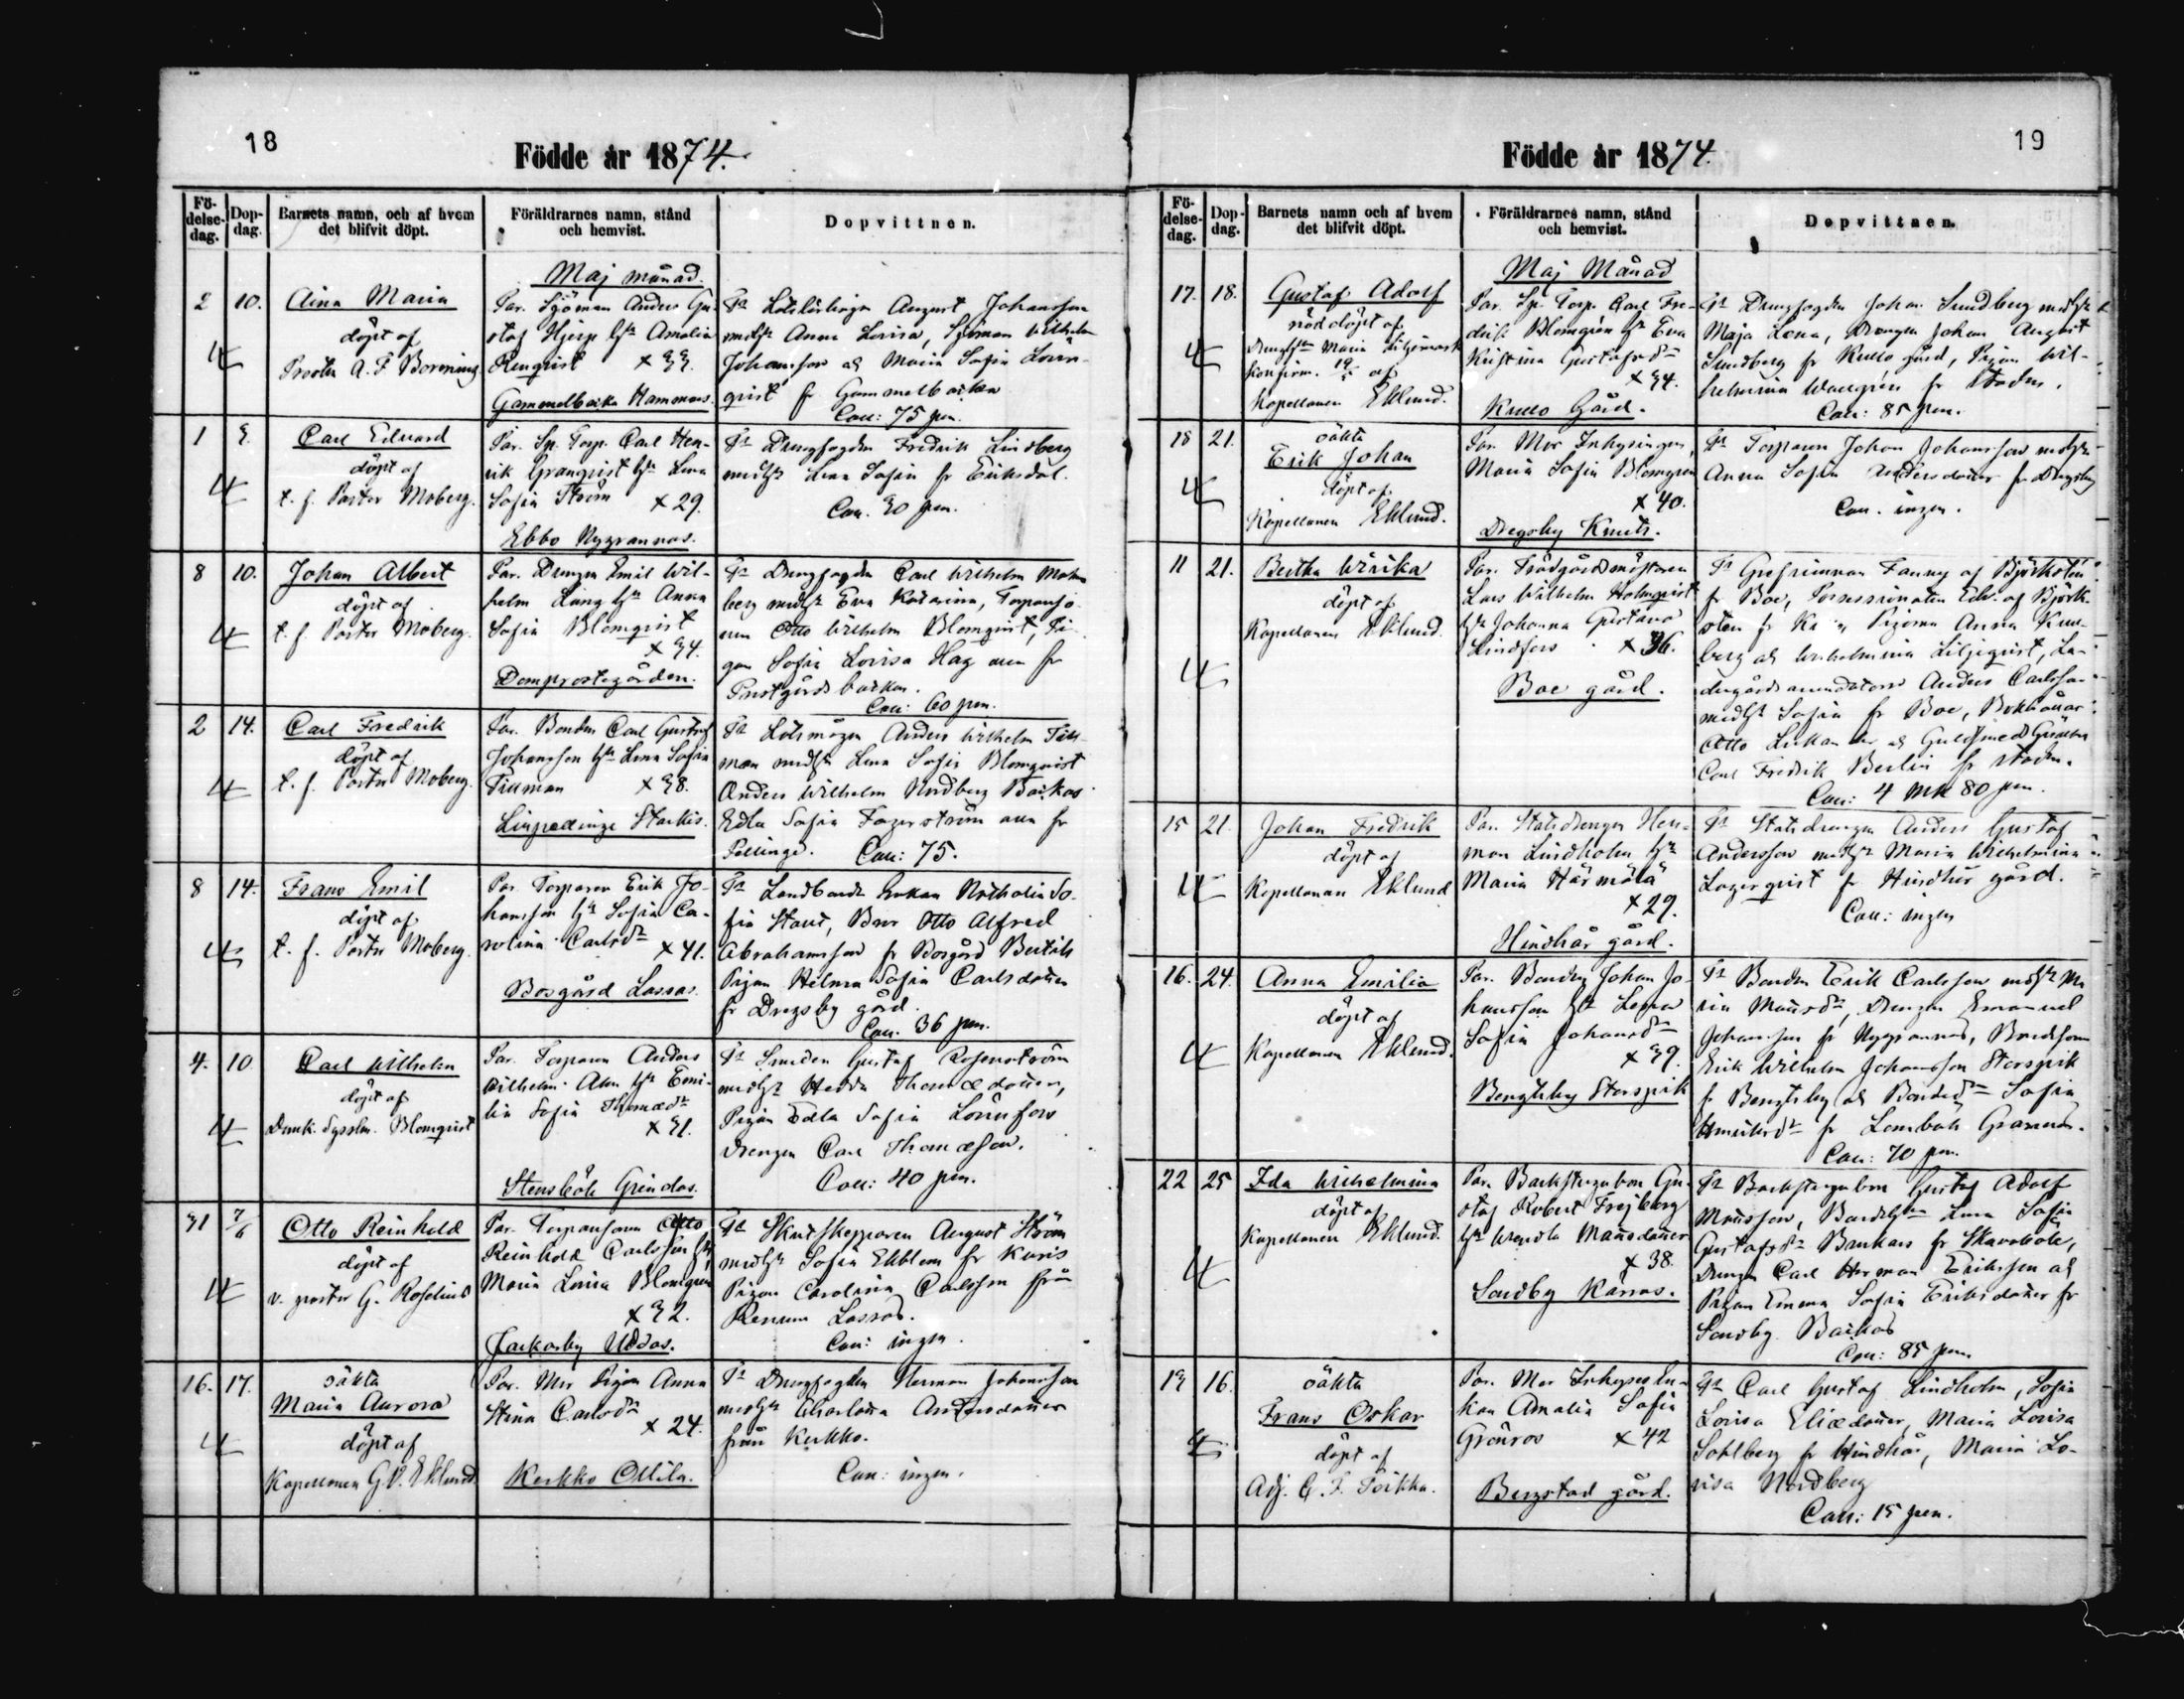 18
Födde år 1874.
Fö-
delse-
dag.
Dop-
dag.
Barnets namn, och af hvem
det blifvit döpt.
Föräldrarnes namn, stånd
och hemvist.
Dopvittnen.
Maj månad.
2
10.
Aina Maria
döpt af
Prosten A. F. Borening
Par. Sjöman Anders Gu-
staf Hjerp hu Amalia
Renqvist × 33.
Gammelbacka Hammars.
Ft August Johansson
medh Anna Lovisa, Sjöman Wilhelm
Johansson och Maria Sofia Lövn-
qvist fr Gammelbacka
Coll: 75 pen.
1
3.
Carl Edvard
döpt af
t. f. Pastor Moberg.
Par. Sp. Torp. Carl Hen-
rik Granqvist hu Lena
Sofia Ström × 29.
Ebbo Nygrannas.
Ft Drengfogden Fredrik Lindberg
medh Lena Sofia fr Eriksdal.
Coll. 30 pen.
8
10.
Johan Albert
döpt af
t. f. Pastor Moberg.
Par. Drengen Emil Wil-
helm Lång hu Anna
Sofia Blomqvist
× 34.
Domprostegården.
Ft Drengfogden Carl Wilhelm Malm
berg medh Eva Katarina,
Otto Wilhelm Blomqvist, Pi-
gan Sofia Lovisa Hag fr
Prestgårds backen.
Coll: 60 pen.
2
14.
Carl Fredrik
döpt af
t. f. Pastor Moberg.
Par. Bonden Carl Gustaf
Johansson hu Lena Sofia
Tillman × 38.
Lillpellinge Starkis.
Ft Anders Wilhelm Till-
man medh Lena Sofia Blomqvist
Anders Wilhelm Nordberg Backas
Edla Sofia Fagerström fr
Pellinge. Coll: 75.
8
14.
Frans Emil
döpt af
t. f. Pastor Moberg.
Par. Torparen Erik Jo-
hansson hu Sofia Ca-
rolina Carlsd × 41.
Bosgård Lassas.
Ft Enkan So-
fia Otto Alfred
Abrahamsson fr Bosgård Bertils
Pigan Hilma Sofia Carlsdotter
fr Drägsby gård.
Coll. 36 pen.
4.
10
Carl Wilhelm
döpt af
Domk. Syssl. Blomqvist
Par. Torparen Anders
Wilhelm Alm hu Emi-
lia Sofia Thomæd
× 31.
Stensböle Grindas.
Ft Smeden Gustaf Rosenström
medh Hedda Thomædotter,
Pigan Edla Sofia Lönnfors
Drengen Carl Thomæson.
Coll: 40 pen.
31
7/6
Otto Reinhold
döpt af
v. pastor G. Roselius
Par. Torparesonen Otto
Reinhold Carlsson hu
Maria Lovisa Blomgren
× 32.
Jackarby Uddas.
Ft Skutskepparen August Ström
medh Sofia Ekblom fr Karis
Pigan Carolina Carlsson från
Renum Lassas.
Coll: ingen.
16.
17.
oäkta
Maria Aurora
döpt af
Kapellanen G. V. Eklund
Par. Mor Pigan Anna
Stina Carlsd
× 24.
Kerkko Ollila.
Ft Drengfogden Herman Johansson
medh Charlotta Andersdotter
från Kerkko.
Coll: ingen.
19
Födde år 1874.
Fö-
delse-
dag.
Dop-
dag.
Barnets namn och af hvem
det blifvit döpt.
Föräldrarnes namn, stånd
och hemvist.
Dopvittnen.
Maj Månad
17.
18.
Gustaf Adolf
nöddöpt af
Maria Liljemark
konfirm. 19/5 af
Kapellanen Eklund.
Par. Sp. Torp. Carl Fre-
drik Blomgrén hu Eva
Kristina Gustafsd
× 34.
Kullo Gård.
Ft Drengfogden Johan Sundberg medh
Maja Lena, Drengen Johan August
Sundberg fr Kullo gård, Pigan Wil-
helmina Wallgrén fr staden.
Coll: 85 pen.
18
21.
oäkta
Erik Johan
döpt af
Kapellanen Eklund.
Par. Mor Inhysingen,
Maria Sofia Blomgren
× 40.
Dregsby Knuts.
Ft Torparen Johan Johansson medh
Anna Sofia Andersdotter fr Dregsby
Coll. ingen.
11
21.
Bertha Wirika
döpt af
Kapellanen Eklund.
Par. Trädgårdsmästaren
Lars Wilhelm Holmqvist
hu Johanna Gustava
Lindfors × 36.
Boe gård.
Ft Grefvinnan Fanny af Björkstén
fr Boe, Possessionaten Edv. af Björk-
stén fr Pigorna Anna
berg och Wilhelmina Liljeqvist, La-
dugårds arrendatorn Anders Carlsson
medh Sofia fr Boe, Bokhållar
Otto och Guldsmed Gesällen
Carl Fredrik Berlin fr staden.
Coll: 4 mk 80 pen.
15
21.
Johan Fredrik
döpt af
Kapellanen Eklund
Par. Statsdrengen Her-
man Lindholm hu
Maria Härmälä
× 29.
Hindhår gård.
Ft Statsdrengen Anders Gustaf
Andersson medh Maria Wilhelmina
Lagerqvist fr Hindhår gård.
Coll: ingen
16.
24.
Anna Emilia
döpt af
Kapellanen Eklund.
Par. Bonden Johan Jo-
hansson hu Lovisa
Sofia Johansd
× 39.
Bengtsby Storspik
Ft Bonden Erik Carlsson medh Ma
ria Månsd, Drengen Emanuel
Johansson fr Nygrannas, Bondesonen
Erik Wilhelm Johansson Storspik
fr Bengtsby och Bonded Sofia
fr Lomböle Grannas.
Coll: 70 pen.
22
25
Ida Wilhelmina
döpt af
Kapellanen Eklund.
Par. Backstugubon Gu-
staf Robert Frejberg
hu Wendla Månsdotter
× 38.
Sondby Karras.
Ft Backstugubon Gustaf Adolf
Månsson, Lena Sofia
Gustafsd Baukars fr Skavaböle,
Drengen Carl Herman Eriksson och
Pigan Emma Sofia Eriksdotter fr
Sondby Backas
Coll: 85 pen.
13
16.
oäkta
Frans Oskar
döpt af
Adj. C. F. Toikka.
Par. Mor Inhyses En-
kan Amalia Sofia
Grönros × 42
Bergstad gård.
Ft Carl Gustaf Lindholm, Sofia
Lovisa Eliædotter, Maria Lovisa
Sohlberg fr Hindhår, Maria Lo-
visa Nordberg
Coll: 15 pen.